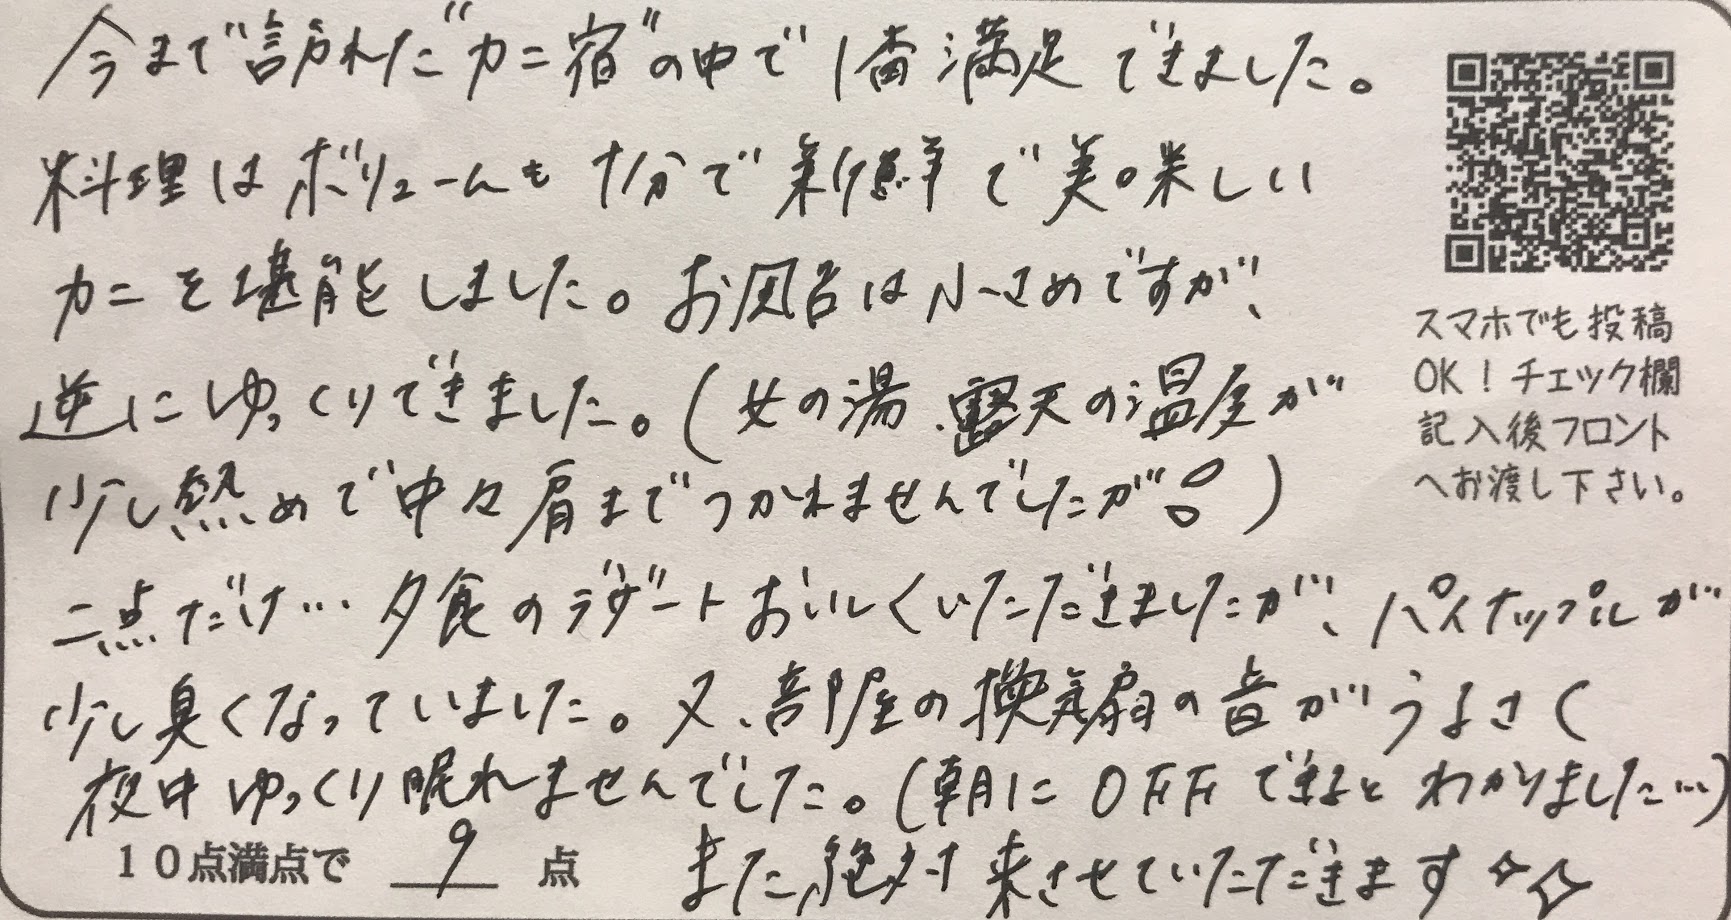 今まで訪れた"カニ宿"の中で1番満足できました。
料理はボリュームも十分で新鮮で美味しい
カニを堪能しました。お風呂は小さめですが、
逆にゆっくりできました。(女の湯、露天の温度が
少し熱めで中々肩までつかれませんでしたが)
二点だけ…夕食のデザートおいしくいただきましたが、パイナップルが
少し臭くなっていました。又、部屋の換気扇の音がうるさく
夜中ゆっくり眠れませんでした。(朝にOFFできるとわかりました…)
また絶対来させていただきます
10点満点で 9 点
スマホでも投稿
OK！チェック欄
記入後フロント
へお渡し下さい。